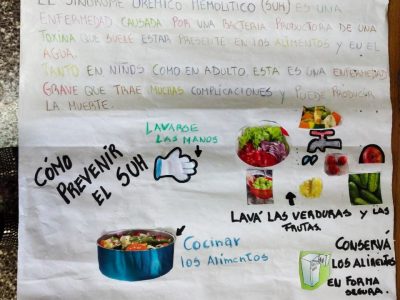 EL SÍNDROME URÉMICO HEMOLÍTICO (SUH) ES UNA
ENFERMEDAD CAUSADA POR UNA BACTERIA PRODUCTORA DE UNA
TOXINA QUE SUELE ESTAR PRESENTE EN LOS ALIMENTOS Y EN EL
AGUA.
TANTO EN NIÑOS COMO EN ADULTO ESTA ES UNA ENFERMEDAD
GRAVE QUE TRAE MUCHAS COMPLICACIONES Y PUEDE PRODUCIR
LA MUERTE.
LAVARSE
LAS MANOS
CÓMO
PREVENIR
EL SUH
LAVÁ LAS VERDURAS Y LAS
FRUTAS.
Cocinar
los Alimentos
CONSERVÁ
LOS ALIMENTOS
EN FORMA
SEGURA.